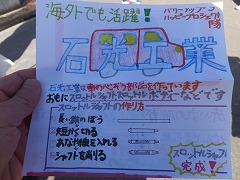 海外でも活躍!
パワーアップ
ハッピープロジェクト
石光工業
石光工業は車の心ぞう部品を作っています
おもにスロットルシャフト,スロットルボディーなどです
スロットルシャフトの作り方
長い鉄のぼう
短かくきる
あなや傷を入れる
シャフトを削る
スロットルシャフト
完成!